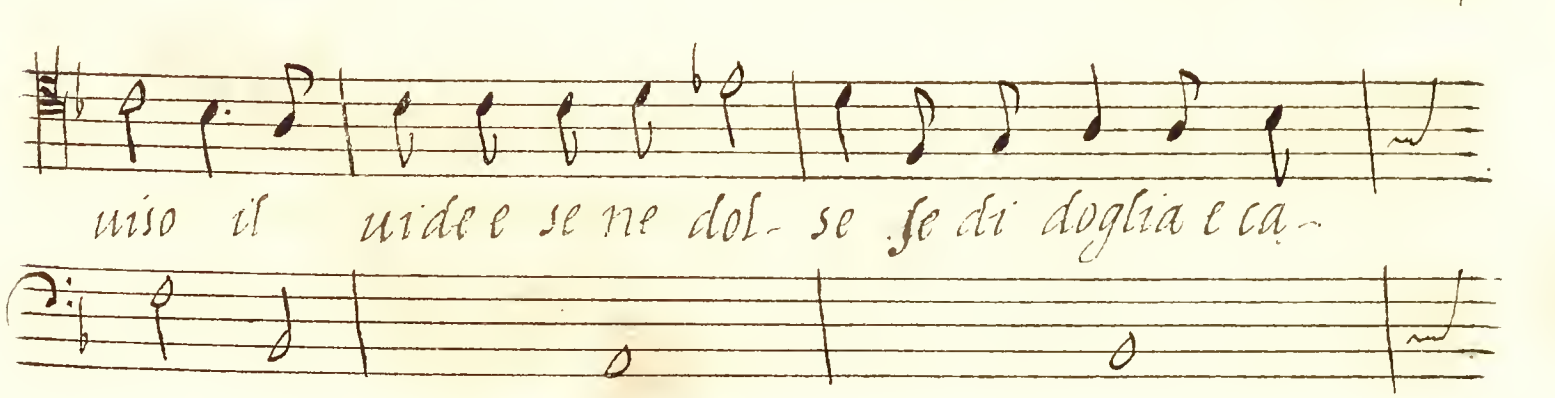 uiso il uide e se ne dol- se se di doglia e ca-